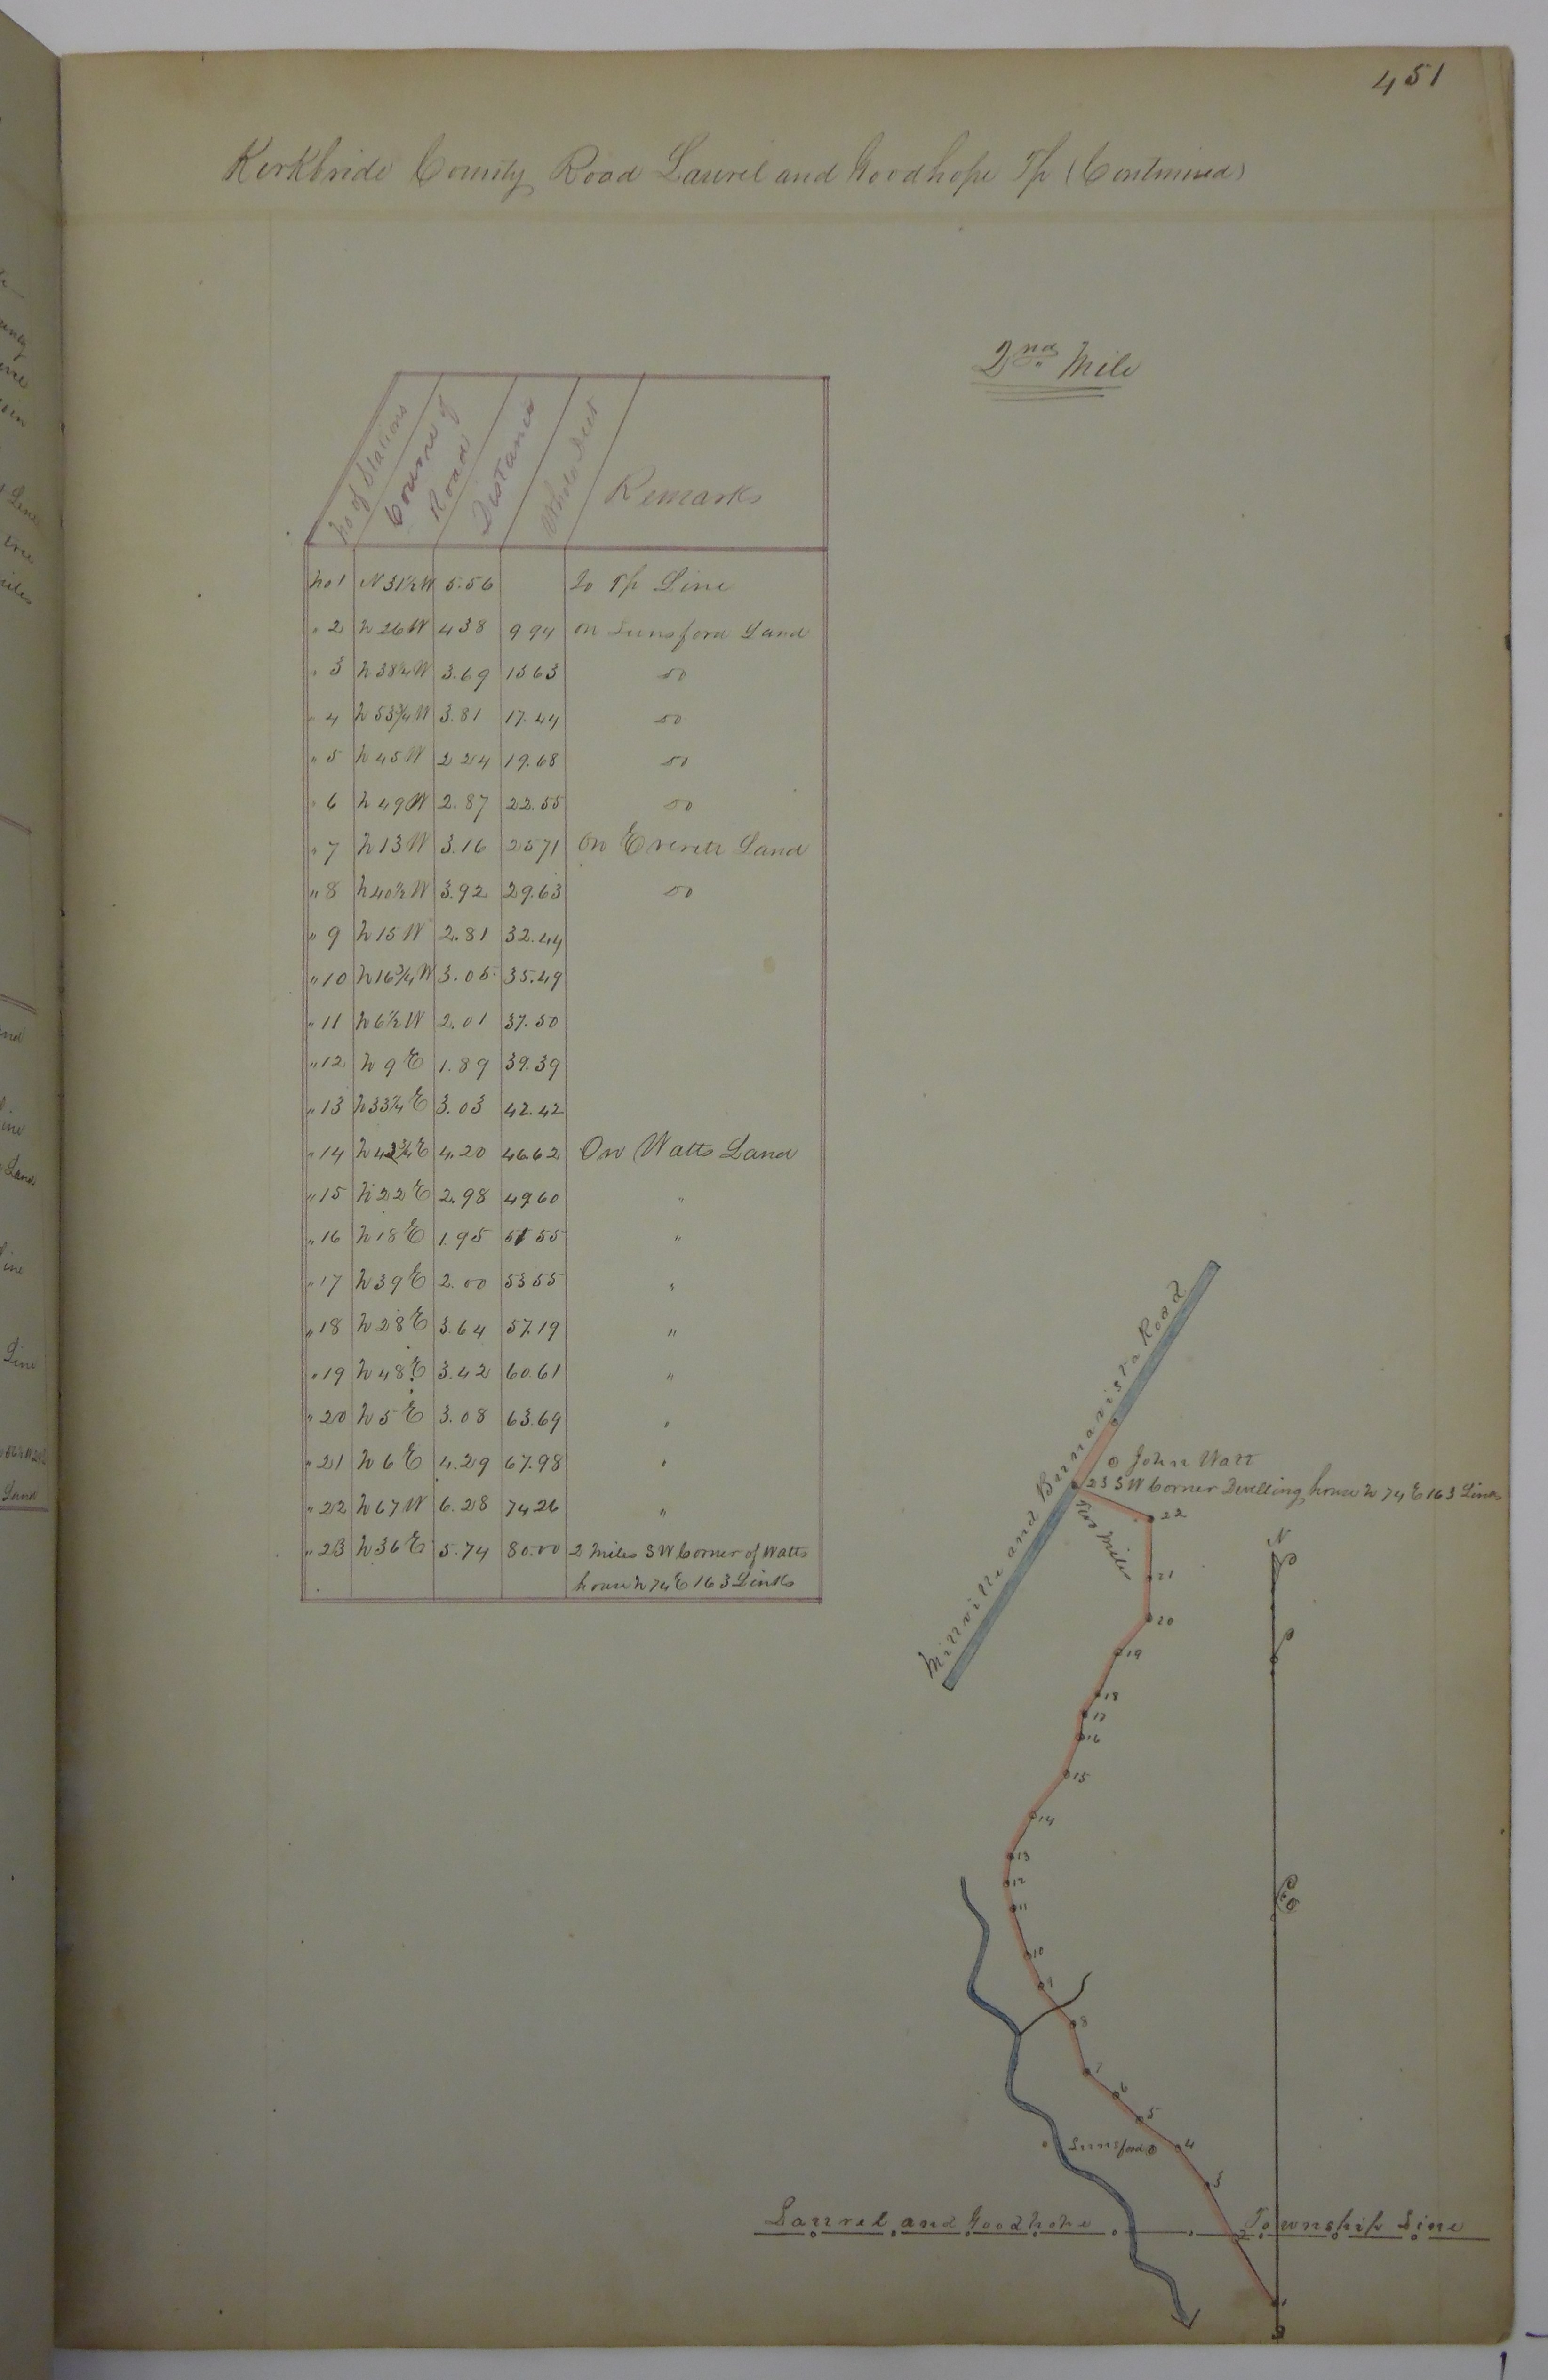 451
Kirkbride County Road Laurel and Goodhope Tp (Continued)
2nd Mile
No of Stations
Course of Road
Distance
Whole Dist
Remarks
No 1 N 31½ W 5.56 To Tp Line
" 2 N 26 W 4 38 9 94 On Lunsford Land
" 3 N 38¼ W 3.69 13 63 do
" 4 N 53¾ W 3.81 17.44 do
" 5 N 45 W 2 24 19.68 do
" 6 N 49 W 2.87 22.55 do
" 7 N 13 W 3.16 25 71 On Everett Land
" 8 N 40½ W 3.92 29.63 do
" 9 N 15 W 2.81 32.44
" 10 N 16¾ W 3.05 35.49
" 11 N 6½ W 2.01 37.50
" 12 N 9 E 1.89 39.39
" 13 N 33¼ E 3.03 42.42
" 14 N 42¾ E 4.20 46.62 On Watts Land
" 15 N 22 E 2.98 49 60 "
" 16 N 18 E 1.95 51 55 "
" 17 N 39 E 2.00 53 55 "
" 18 N 28 E 3.64 57.19 "
" 19 N 48 E 3.42 60.61 "
" 20 N 5 E 3.08 63.69 "
" 21 N 6 E 4.29 67.98 "
" 22 N 67 W 6.28 74 26 "
" 23 N 36 E 5.74 80.00 2 Miles S W Corner of Watts
house N 74 E 163 Links
Minville and Bunavista Road
John Watt
23 S W Corner Dwelling house N 74 E 163 Links
Two Miles
22
21
20
19
18
17
16
15
14
13
12
11
10
9
8
7
6
5
4
3
2
1
N
Lunsford
Laurel and Goodhope Township Line
S